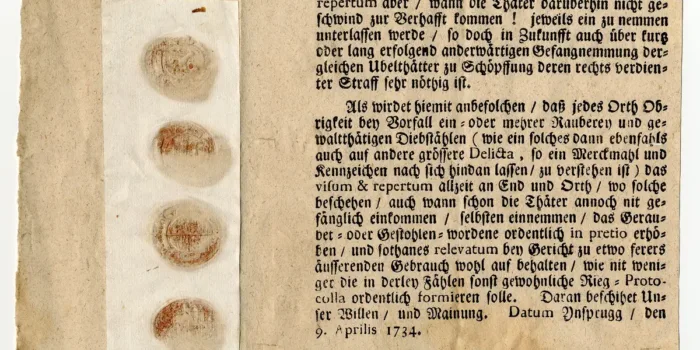 repertum aber / wann die Thäter darüberhin nicht ge-
schwind zur Verhafft kommen ! jeweils ein zu nemmen
unterlassen werde / so doch in Zukunfft auch über kurtz
oder lang erfolgend anderwärtigen Gefangnemmung der-
gleichen Ubelthätter zu Schöpffung deren rechts verdien-
ter Straff sehr nöthig ist.
Als wirdet hiemit anbefolchen / daß jedes Orth Ob-
rigkeit bey Vorfall ein- oder mehrer Rauberey und ge-
waltthätigen Diebstählen ( wie ein solches dann ebenfahls
auch auf andere grössere Delicta , so ein Merckmahl und
Kennzeichen nach sich hindan lassen / zu verstehen ist ) das
visum & repertum allzeit an End und Orth / wo solche
beschehen / auch wann schon die Thäter annoch nit ge-
fänglich einkommen / selbsten einnemmen / das Gerau-
bet- oder Gestohlen-wordene ordentlich in pretio erhö-
ben / und sothanes relevatum bey Gericht zu etwo ferers
äusserenden Gebrauch wohl auf behalten / wie nit weni-
ger die in derley Fählen sonst gewohnliche Rieg-Proto-
colla ordentlich formieren solle. Daran beschihet Un-
ser Willen / und Mainung. Datum Ynsprugg / den
9. Aprilis 1734.